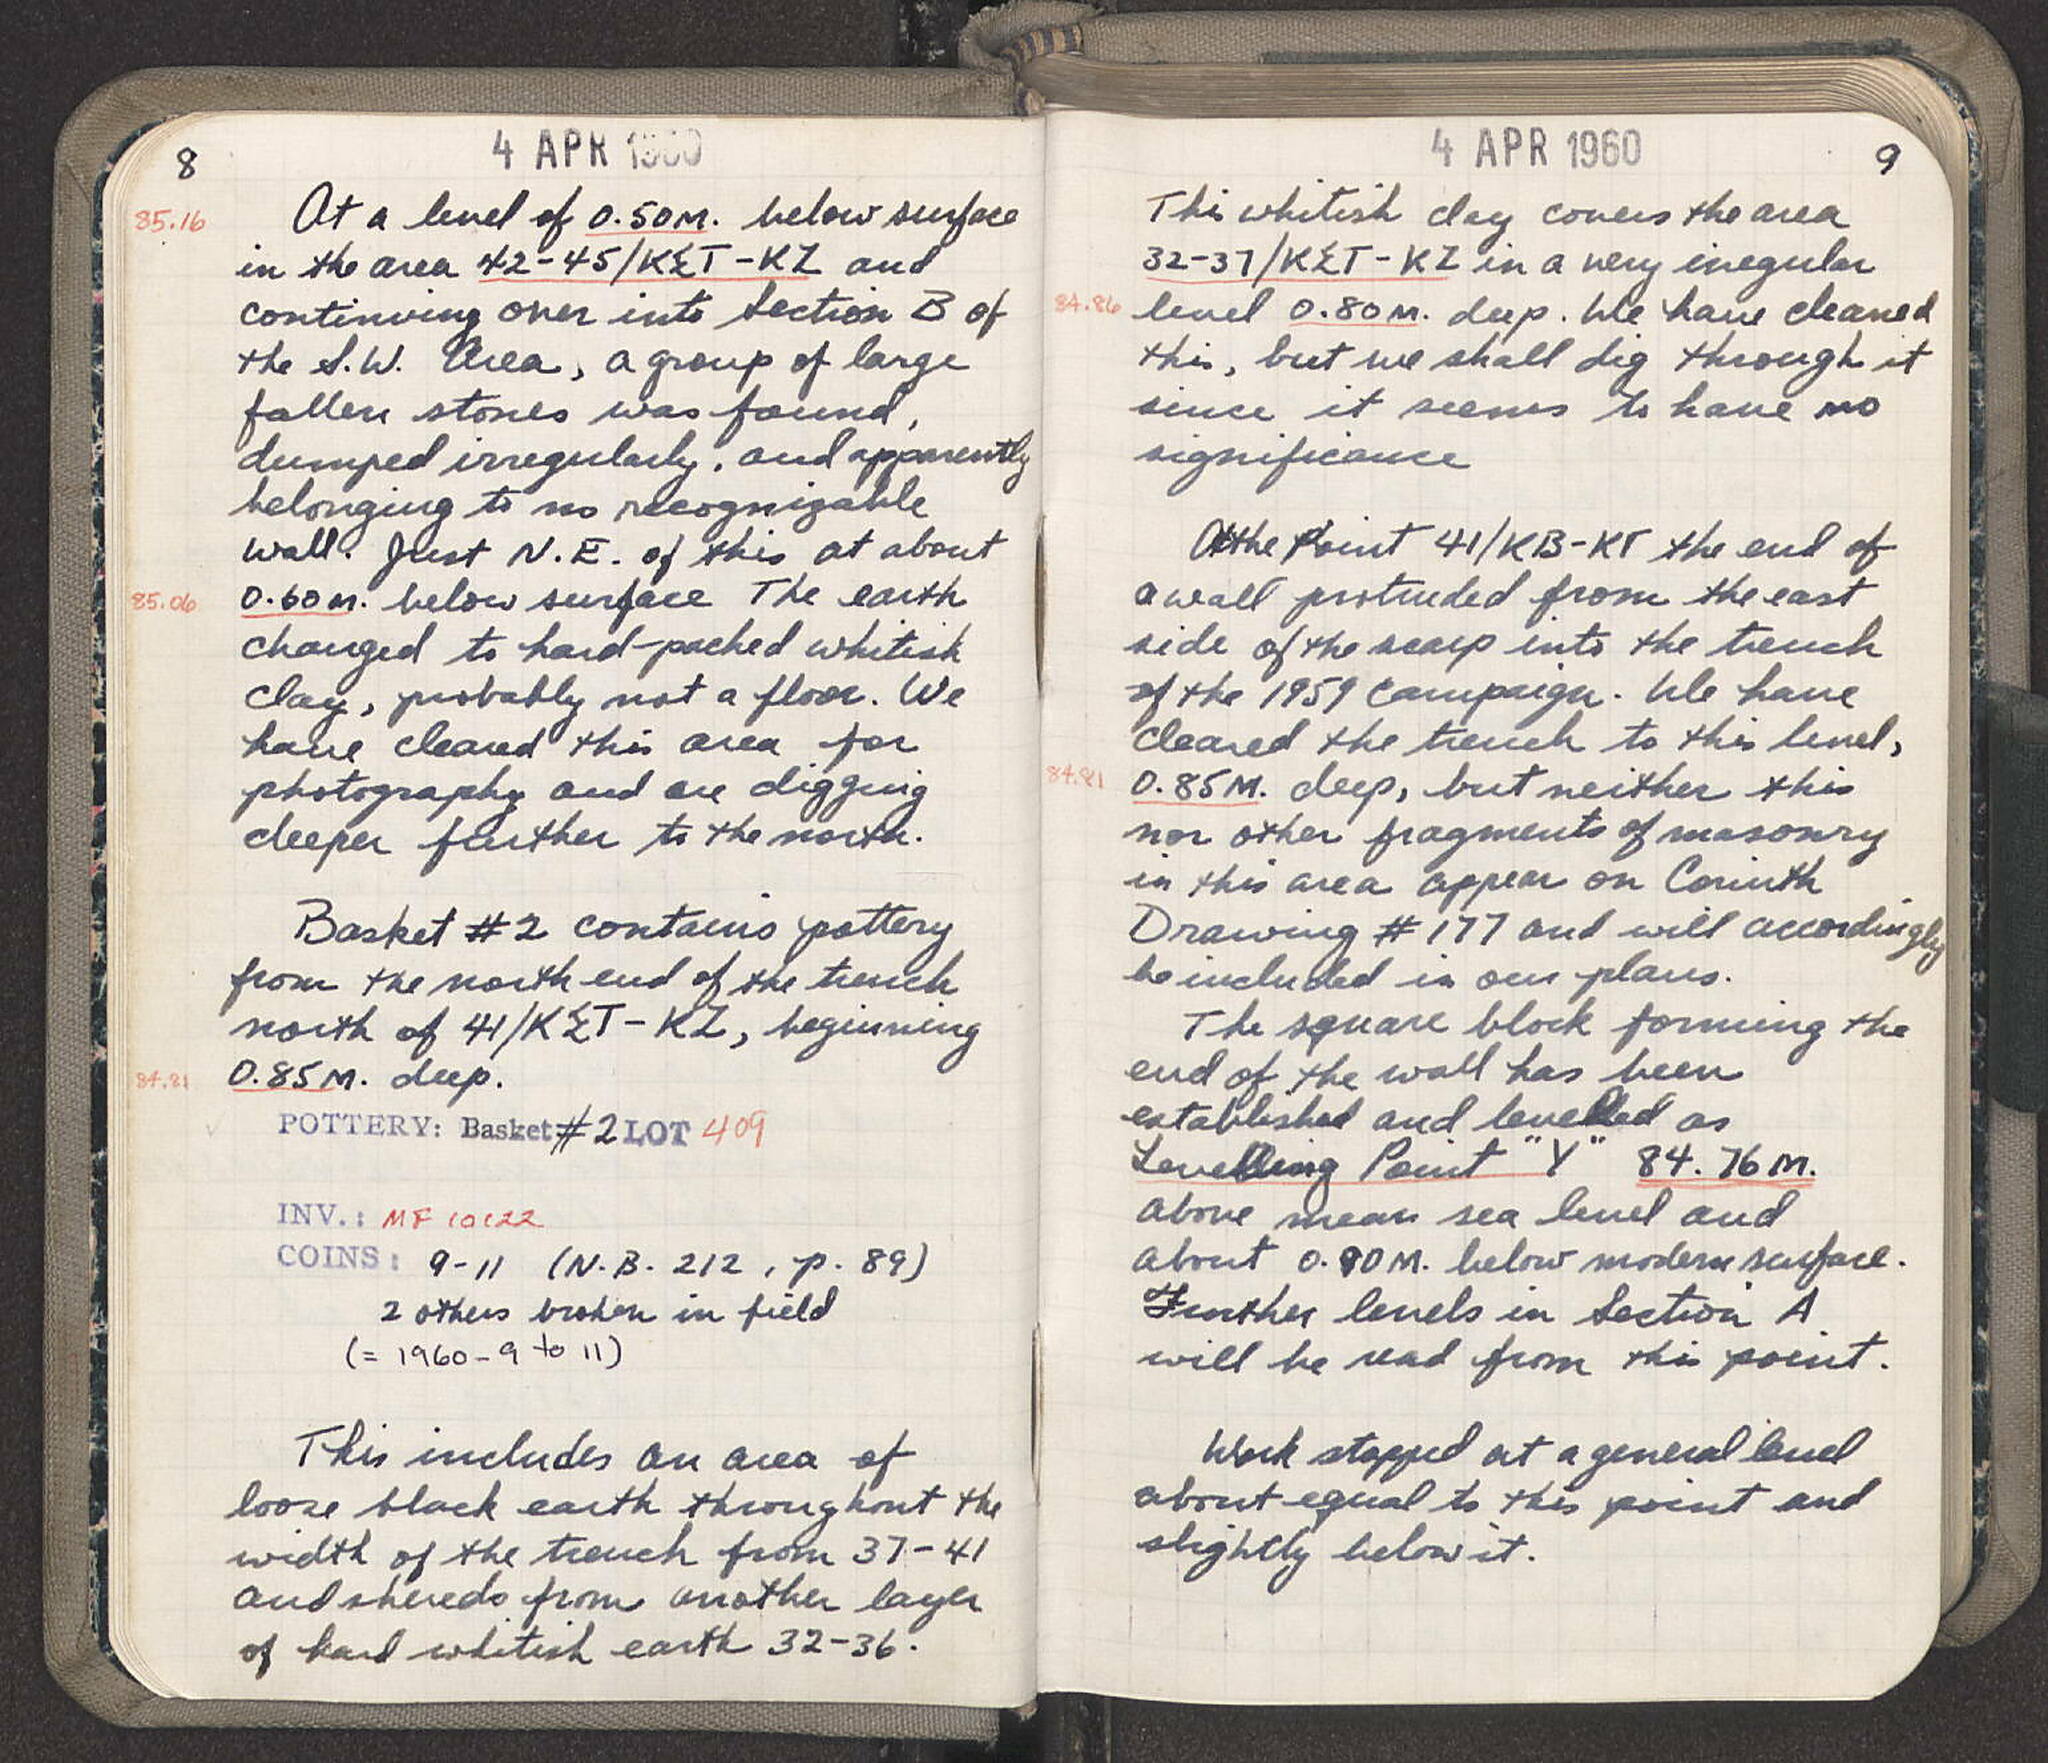 8
4 APR 1960
85.16
At a level of 0.50M. below surface
in the area 42-45/KΣT-KZ and
continuing over into Section B of
the S.W. Area, a group of large
fallen stones was found,
dumped irregularly, and apparently
belonging to no recognizable
wall. Just N.E. of this at about
85.06
0.60m. below surface The earth
changed to hard-packed whitish
clay, probably not a floor. We
have cleared this area for
photography and are digging
deeper further to the north.
Basket #2 contains pottery
from the north end of the trench
north of 41/KΣT-KZ, beginning
84.81
0.85M. deep.
POTTERY: Basket #2 LOT 409
INV.: MF 10122
COINS: 9-11 (N.B. 212, p. 89)
2 others broken in field
(= 1960-9 to 11)
This includes an area of
loose black earth throughout the
width of the trench from 37-41
and shereds from another layer
of hard whitish earth 32-36.
4 APR 1960
9
This whitish clay covers the area
32-37/KΣT-KZ in a very irregular
84.86
level 0.80M. deep. We have cleaned
this, but we shall dig through it
since it seems to have no
significance
At the Point 41/KB-KΓ the end of
a wall protruded from the east
side of the scarp into the trench
of the 1959 campaign. We have
cleared the trench to this level,
84.81
0.85M. deep, but neither this
nor other fragments of masonry
in this area appear on Corinth
Drawing #177 and will accordingly
be included in our plans.
The square block forming the
end of the wall has been
established and levelled as
Levelling Point "Y" 84.76m.
above mean sea level and
about 0.90M. below modern surface.
Further levels in Section A
will be read from this point.
Work stopped at a general level
about equal to this point and
slightly below it.